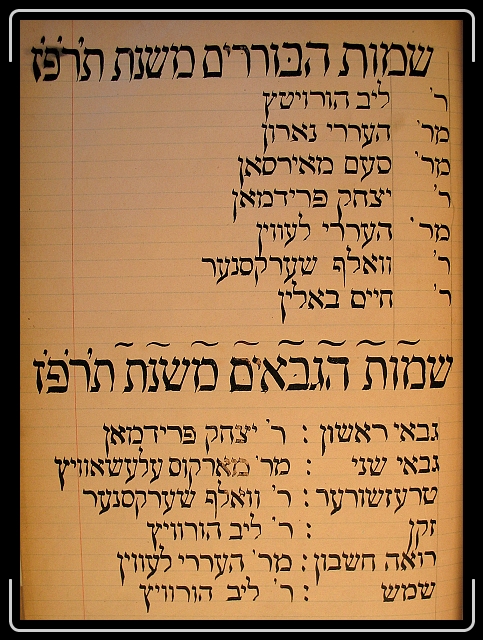 שמות הבוררים משנת תרפ״ז
ר׳ ליב הורוויטץ
מר׳ העררי נארון
מר׳ סעם מאירסאן
ר׳ יצחק פרידמאן
מר׳ העררי לעווין
ר׳ וואלף שערקסנער
ר׳ חיים באלין
שמות הגבאים משנת תרפ״ז
גבאי ראשון : ר׳ יצחק פרידמאן
גבאי שני : מר׳ מארקוס עלעשאוויץ
טרעזשורער : ר׳ וואלף שערקסנער
זקן : ר׳ ליב הורוויץ
רואה חשבון : מר׳ העררי לעווין
שמש : ר׳ ליב הורוויץ